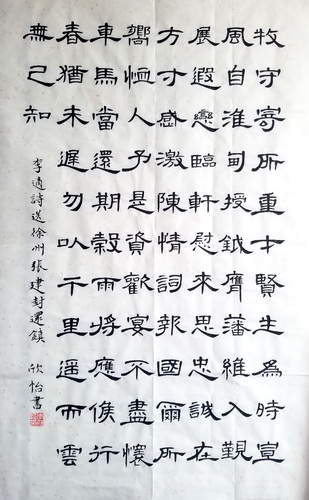 牧守寄所重才賢生為時宣
風自淮甸授鉞膺藩維入覲
展遐戀臨軒慰來思忠誠在
方寸感激陳情詞報國爾所
嚮恤人予是資歡宴不盡懷
車馬當還期穀雨將應候行
春猶未遲勿以千里遥而雲
無己知
李適詩送徐州張建封還鎮 欣怡書